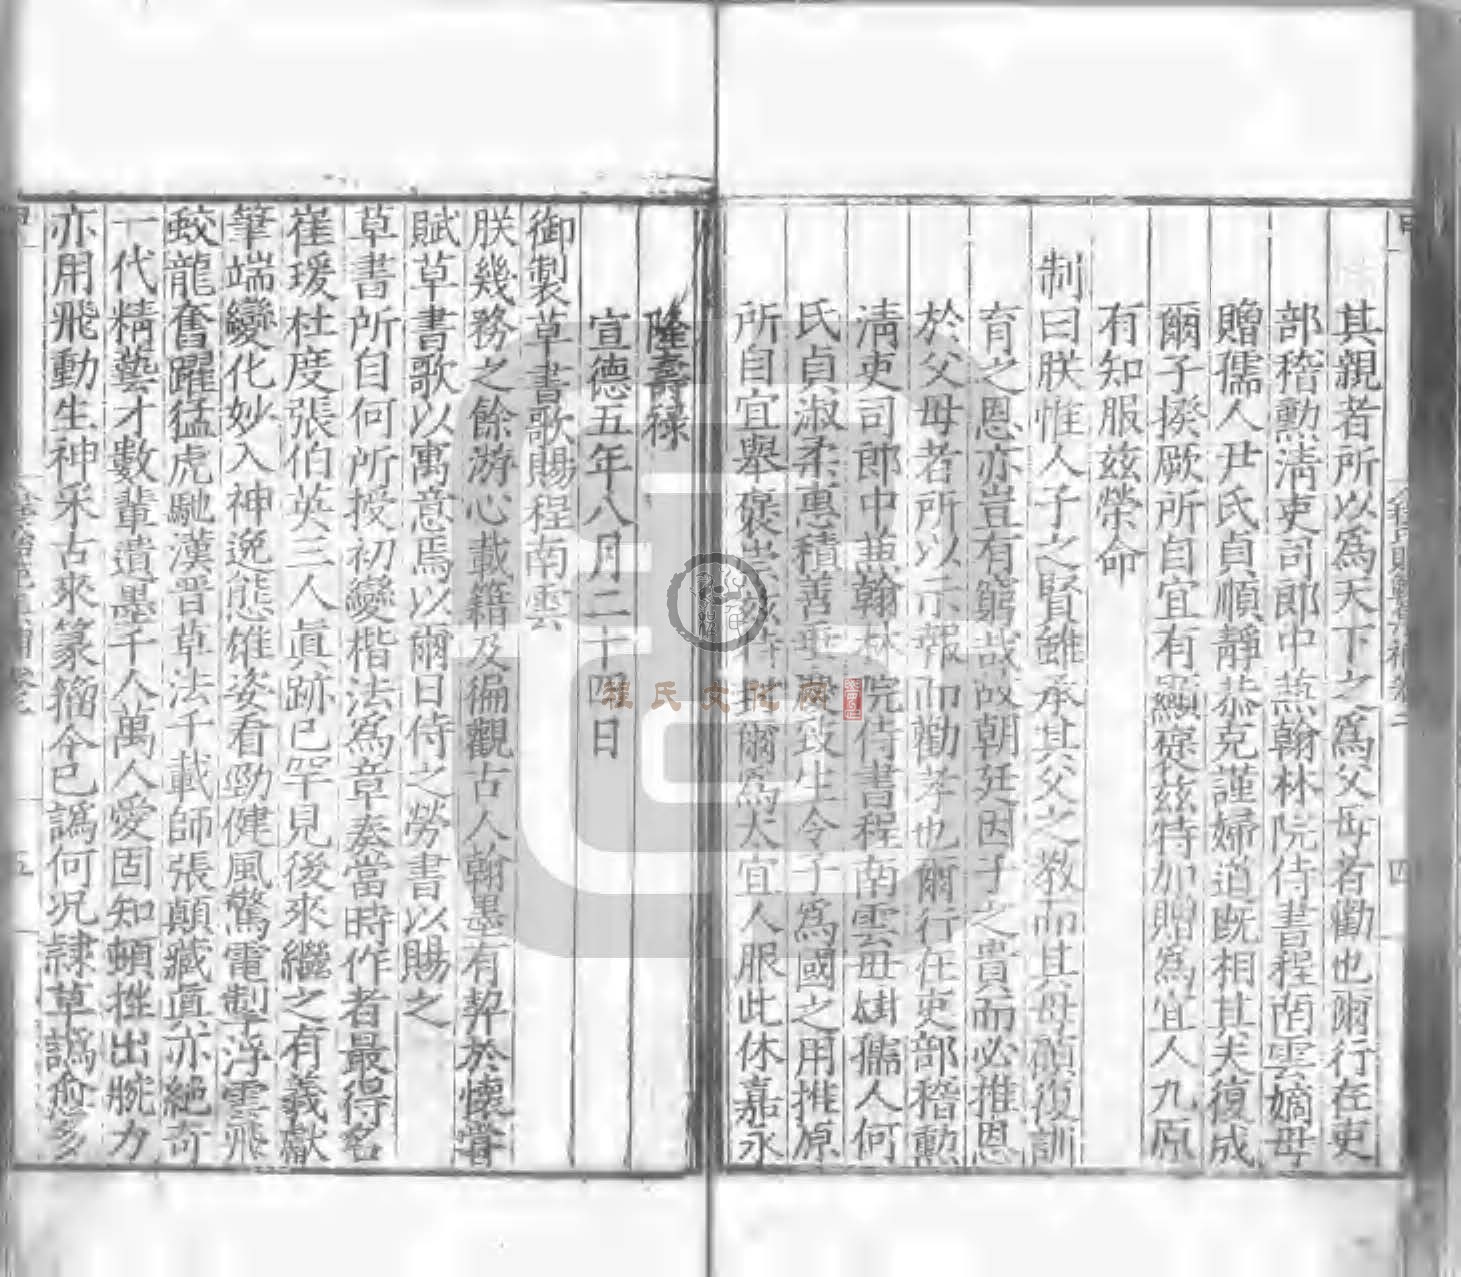 其親者所以為天下之為父母者勸也爾行在吏
部稽勳清吏司郎中兼翰林院侍書程南雲嫡母
贈孺人尹氏貞順靜恭克謹婦道既相其夫復成
爾子揆厥所自宜有顯褒茲特加贈為宜人九原
有知服茲榮命
制曰朕惟人子之賢雖承其父之教而其母顧復訓
育之恩亦豈有窮哉故朝廷因子之貴而必推恩
於父母者所以示報而勸孝也爾行在吏部稽勳
清吏司郎中兼翰林院侍書程南雲母封孺人何
氏貞淑柔惠積善垂慶致生令子為國之用推原
所自宜舉褒崇茲特封爾為太宜人服此休嘉永
隆壽祿
宣德五年八月二十四日
御製草書歌賜程南雲
朕幾務之餘游心載籍及徧觀古人翰墨有契於懷嘗
賦草書歌以寓意焉以爾日侍之勞書以賜之
草書所自何所授初變楷法為章奏當時作者最得名
崔瑗杜度張伯英三人真跡已罕見後來繼之有羲獻
筆端變化妙入神逸態雄姿看勁健風驚電掣浮雲飛
蛟龍奮躍猛虎馳漢晉草法千載師張顛藏真亦絕奇
一代精藝才數輩遺墨千人萬人愛固知頓挫出腕力
亦用飛動生神采古來篆籀今已譌何況隸草譌愈多
四
五
程氏文化网